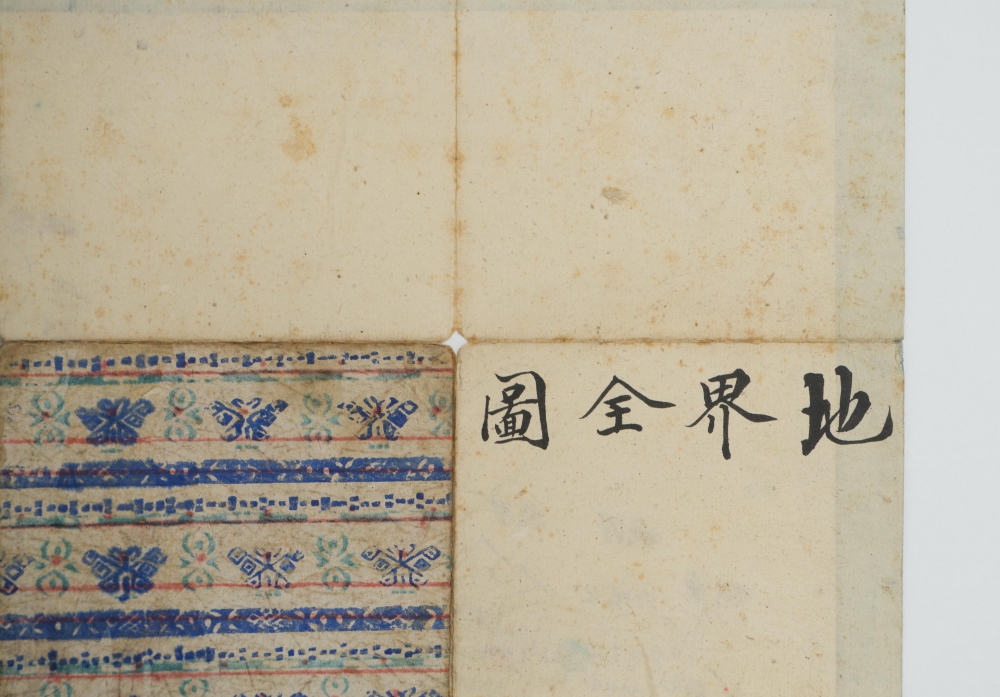 地界全圖